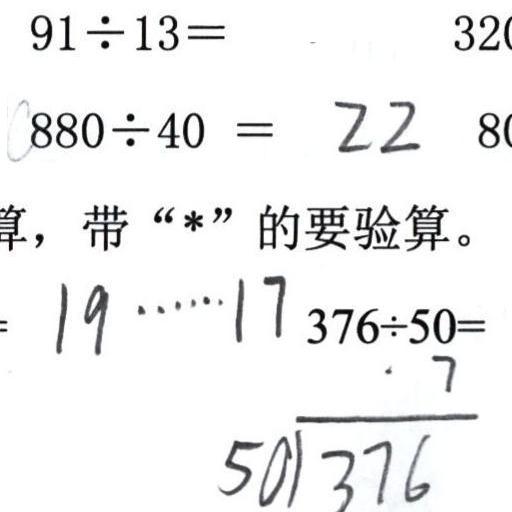 91÷13= 320
880÷40 = 22 80
算，带“*”的要验算。
= 19……17 376÷50=
7
50)376